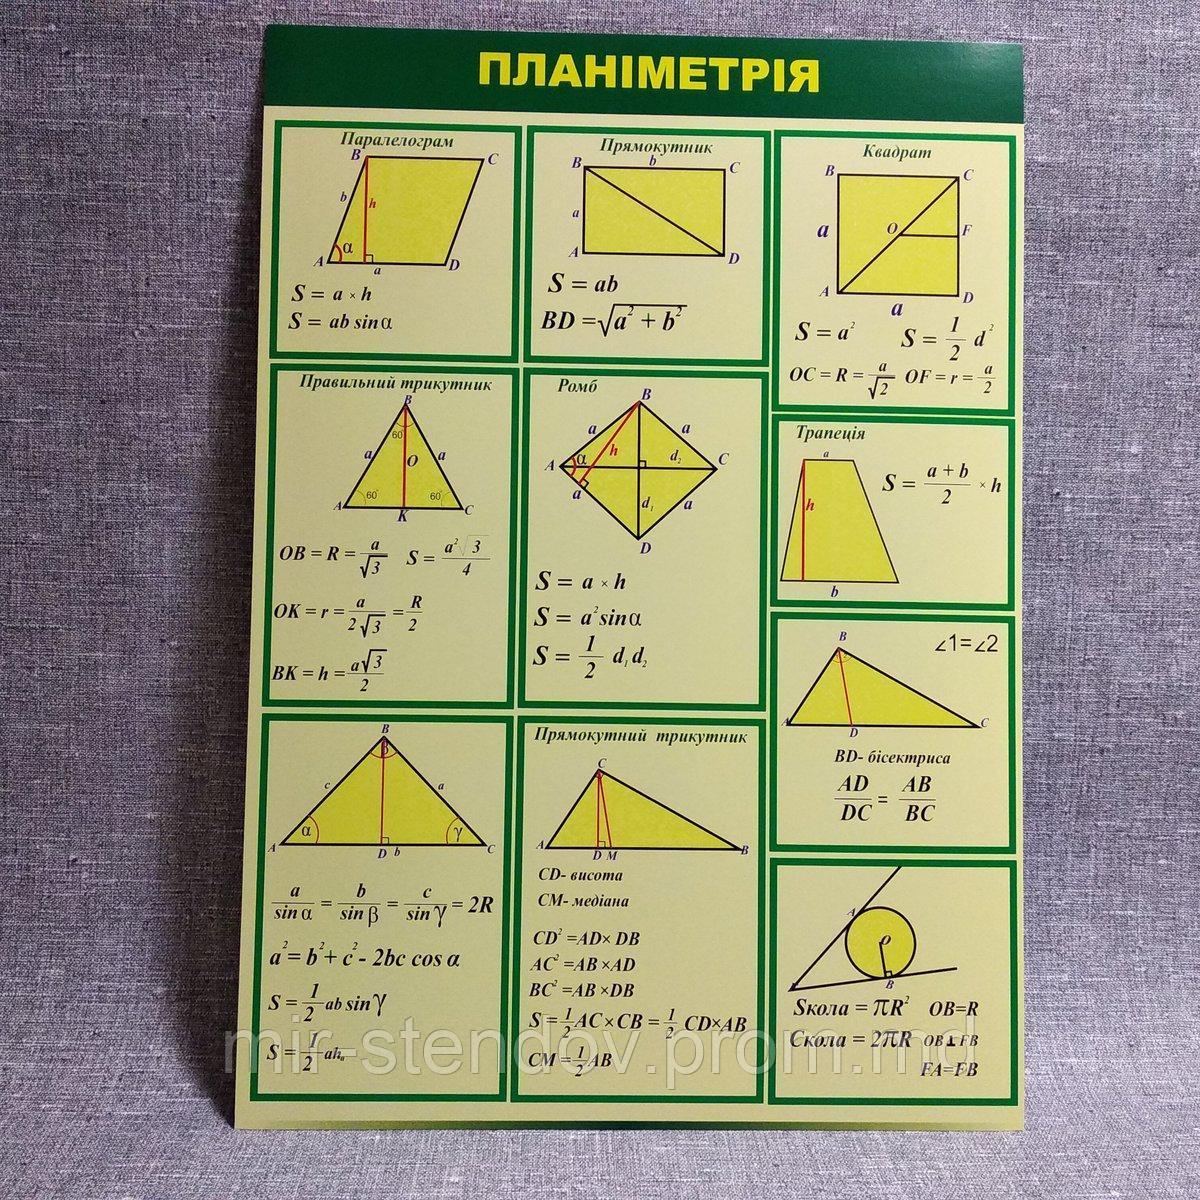 ПЛАНІМЕТРІЯ
Паралелограм
B C
b h
α
A a D
S = a × h
S = ab sin α
Прямокутник
B b C
a
A D
S = ab
BD = √a² + b²
Квадрат
B C
a O F
A D
a
S = a² S = 1/2 d²
OC = R = a/√2 OF = r = a/2
Правильний трикутник
B
60°
a O a
60° 60°
A K C
OB = R = a/√3 S = a²√3/4
OK = r = a/2√3 = R/2
BK = h = a√3/2
Ромб
B
a h a
A α d₂ C
a d₁ a
D
S = a × h
S = a² sin α
S = 1/2 d₁ d₂
Трапеція
a
h
b
S = a + b/2 × h
B ∠1=∠2
A D C
BD- бісектриса
AD/DC = AB/BC
B
β
c a
α γ
A D b C
a/sin α = b/sin β = c/sin γ = 2R
a² = b² + c² - 2bc cos α
S = 1/2 ab sin γ
S = 1/2 ahₐ
Прямокутний трикутник
C
A D M B
CD- висота
CM- медіана
CD² =AD× DB
AC² =AB ×AD
BC² =AB ×DB
S = 1/2 AC × CB = 1/2 CD×AB
CM = 1/2 AB
A
O
B
Sкола = πR² OB=R
Cкола = 2πR OB⊥FB
FA=FB
mir-stendov.prom.md